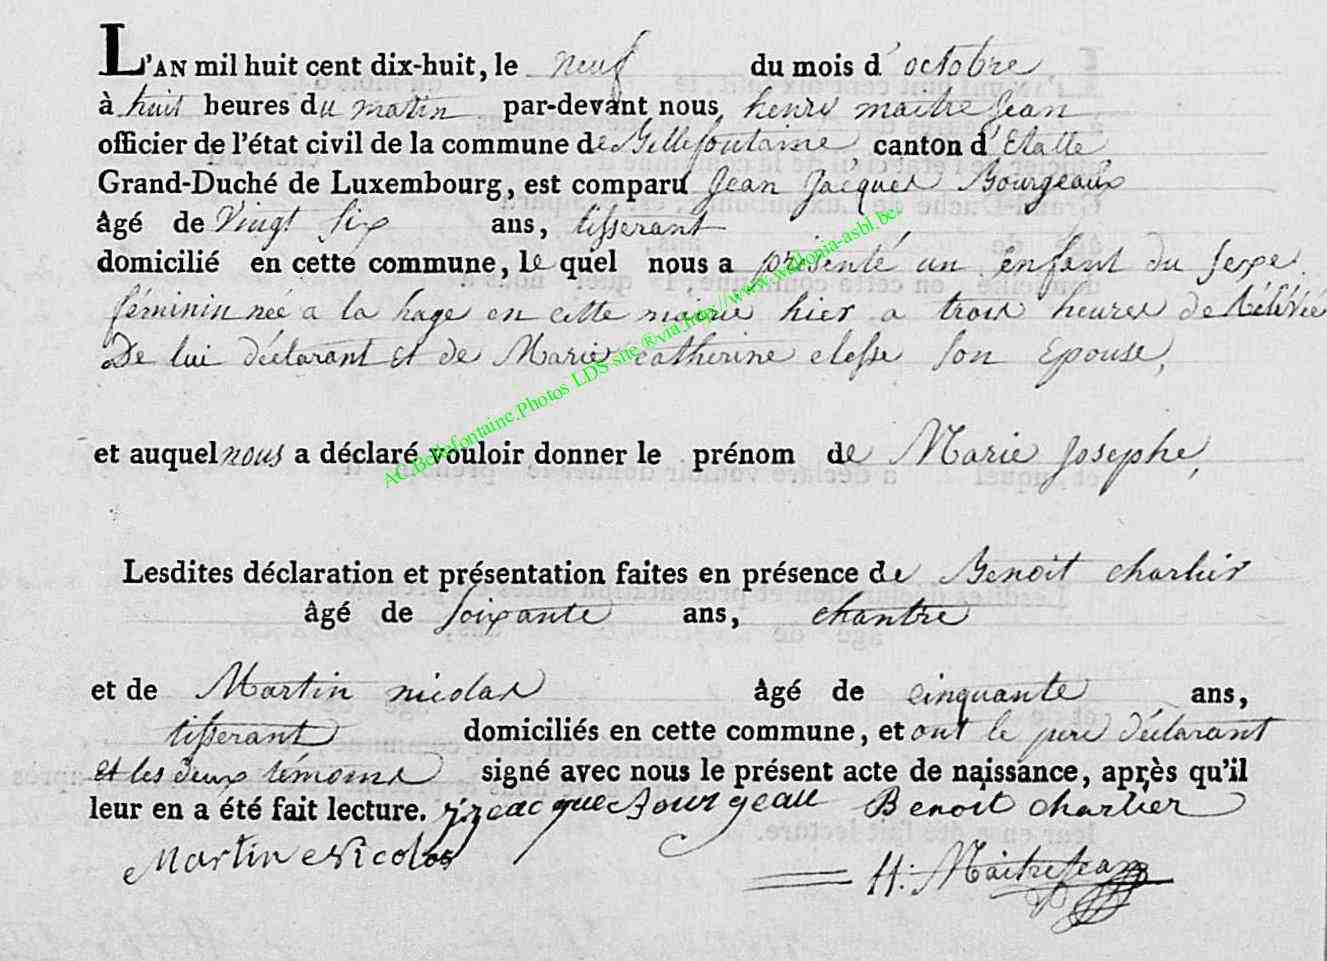 L'AN mil huit cent dix-huit, le neuf du mois d'octobre
à huit heures du matin par-devant nous henri maitre Jean
officier de l'état civil de la commune de Bellefontaine canton d'Etalle
Grand-Duché de Luxembourg, est comparu Jean Jacques Bourgeaux
âgé de Vingt Six ans, tisserant
domicilié en cette commune, le quel nous a présenté un enfant du sexe
féminin née a la hage en cette mairie hier a trois heures de
De lui déclarant et de Marie catherine clesse son Epouse,
et auquel nous a déclaré vouloir donner le prénom de Marie Josephe,
Lesdites déclaration et présentation faites en présence de Benoit charlier
âgé de soixante ans, chantre
et de Martin nicolas âgé de cinquante ans,
tisserant domiciliés en cette commune, et ont le pere déclarant
et les deux témoins signé avec nous le présent acte de naissance, après qu'il
leur en a été fait lecture. Benoit charlier
Martin Nicolas H: MaitreJean
AC.Bellefontaine.Photos LDS site ®via http://www.wallonia-asbl.be.